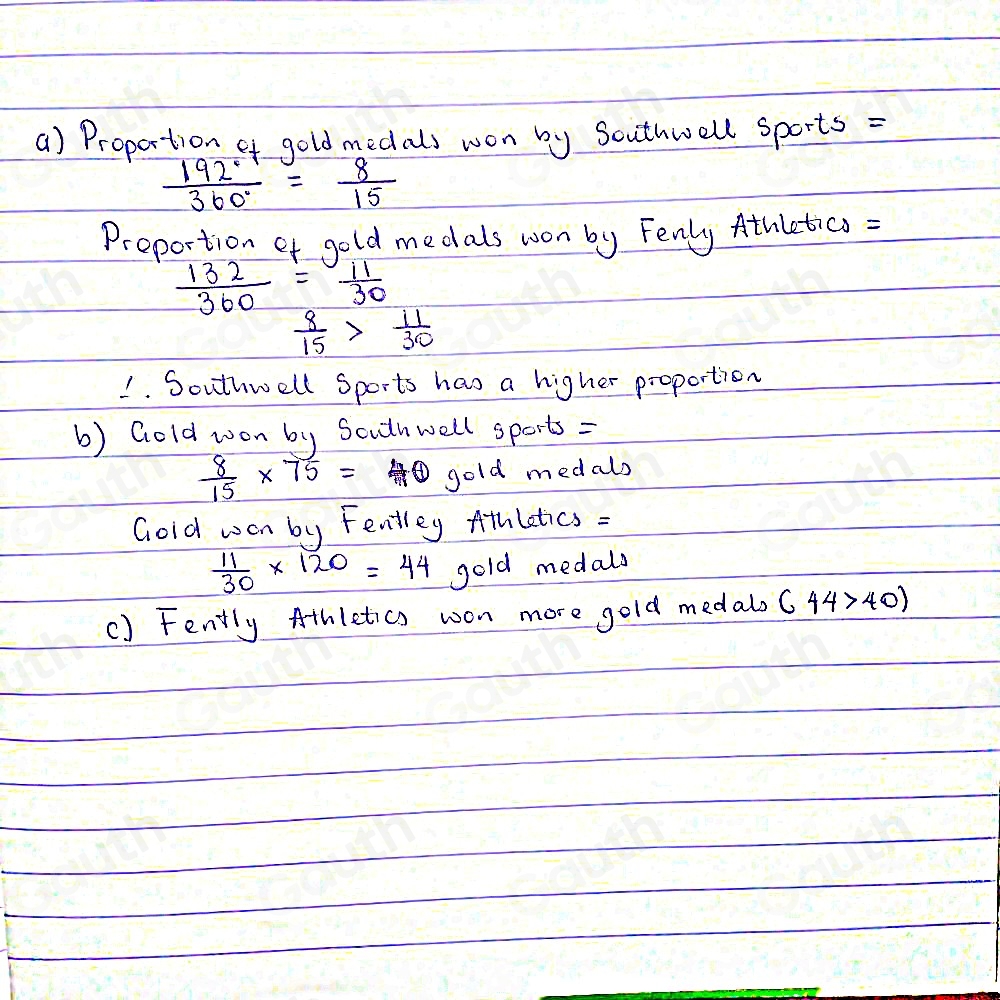 a) Proportion of gold medals won by Southwell Sports =
192° / 360° = 8 / 15
Proportion of gold medals won by Fenly Athletics =
132 / 360 = 11 / 30
8 / 15 > 11 / 30
∴ Southwell Sports has a higher proportion
b) Gold won by Southwell sports =
8 / 15 × 75 = 40 gold medals
Gold won by Fentley Athletics =
11 / 30 × 120 = 44 gold medals
c) Fently Athletics won more gold medals (44>40)